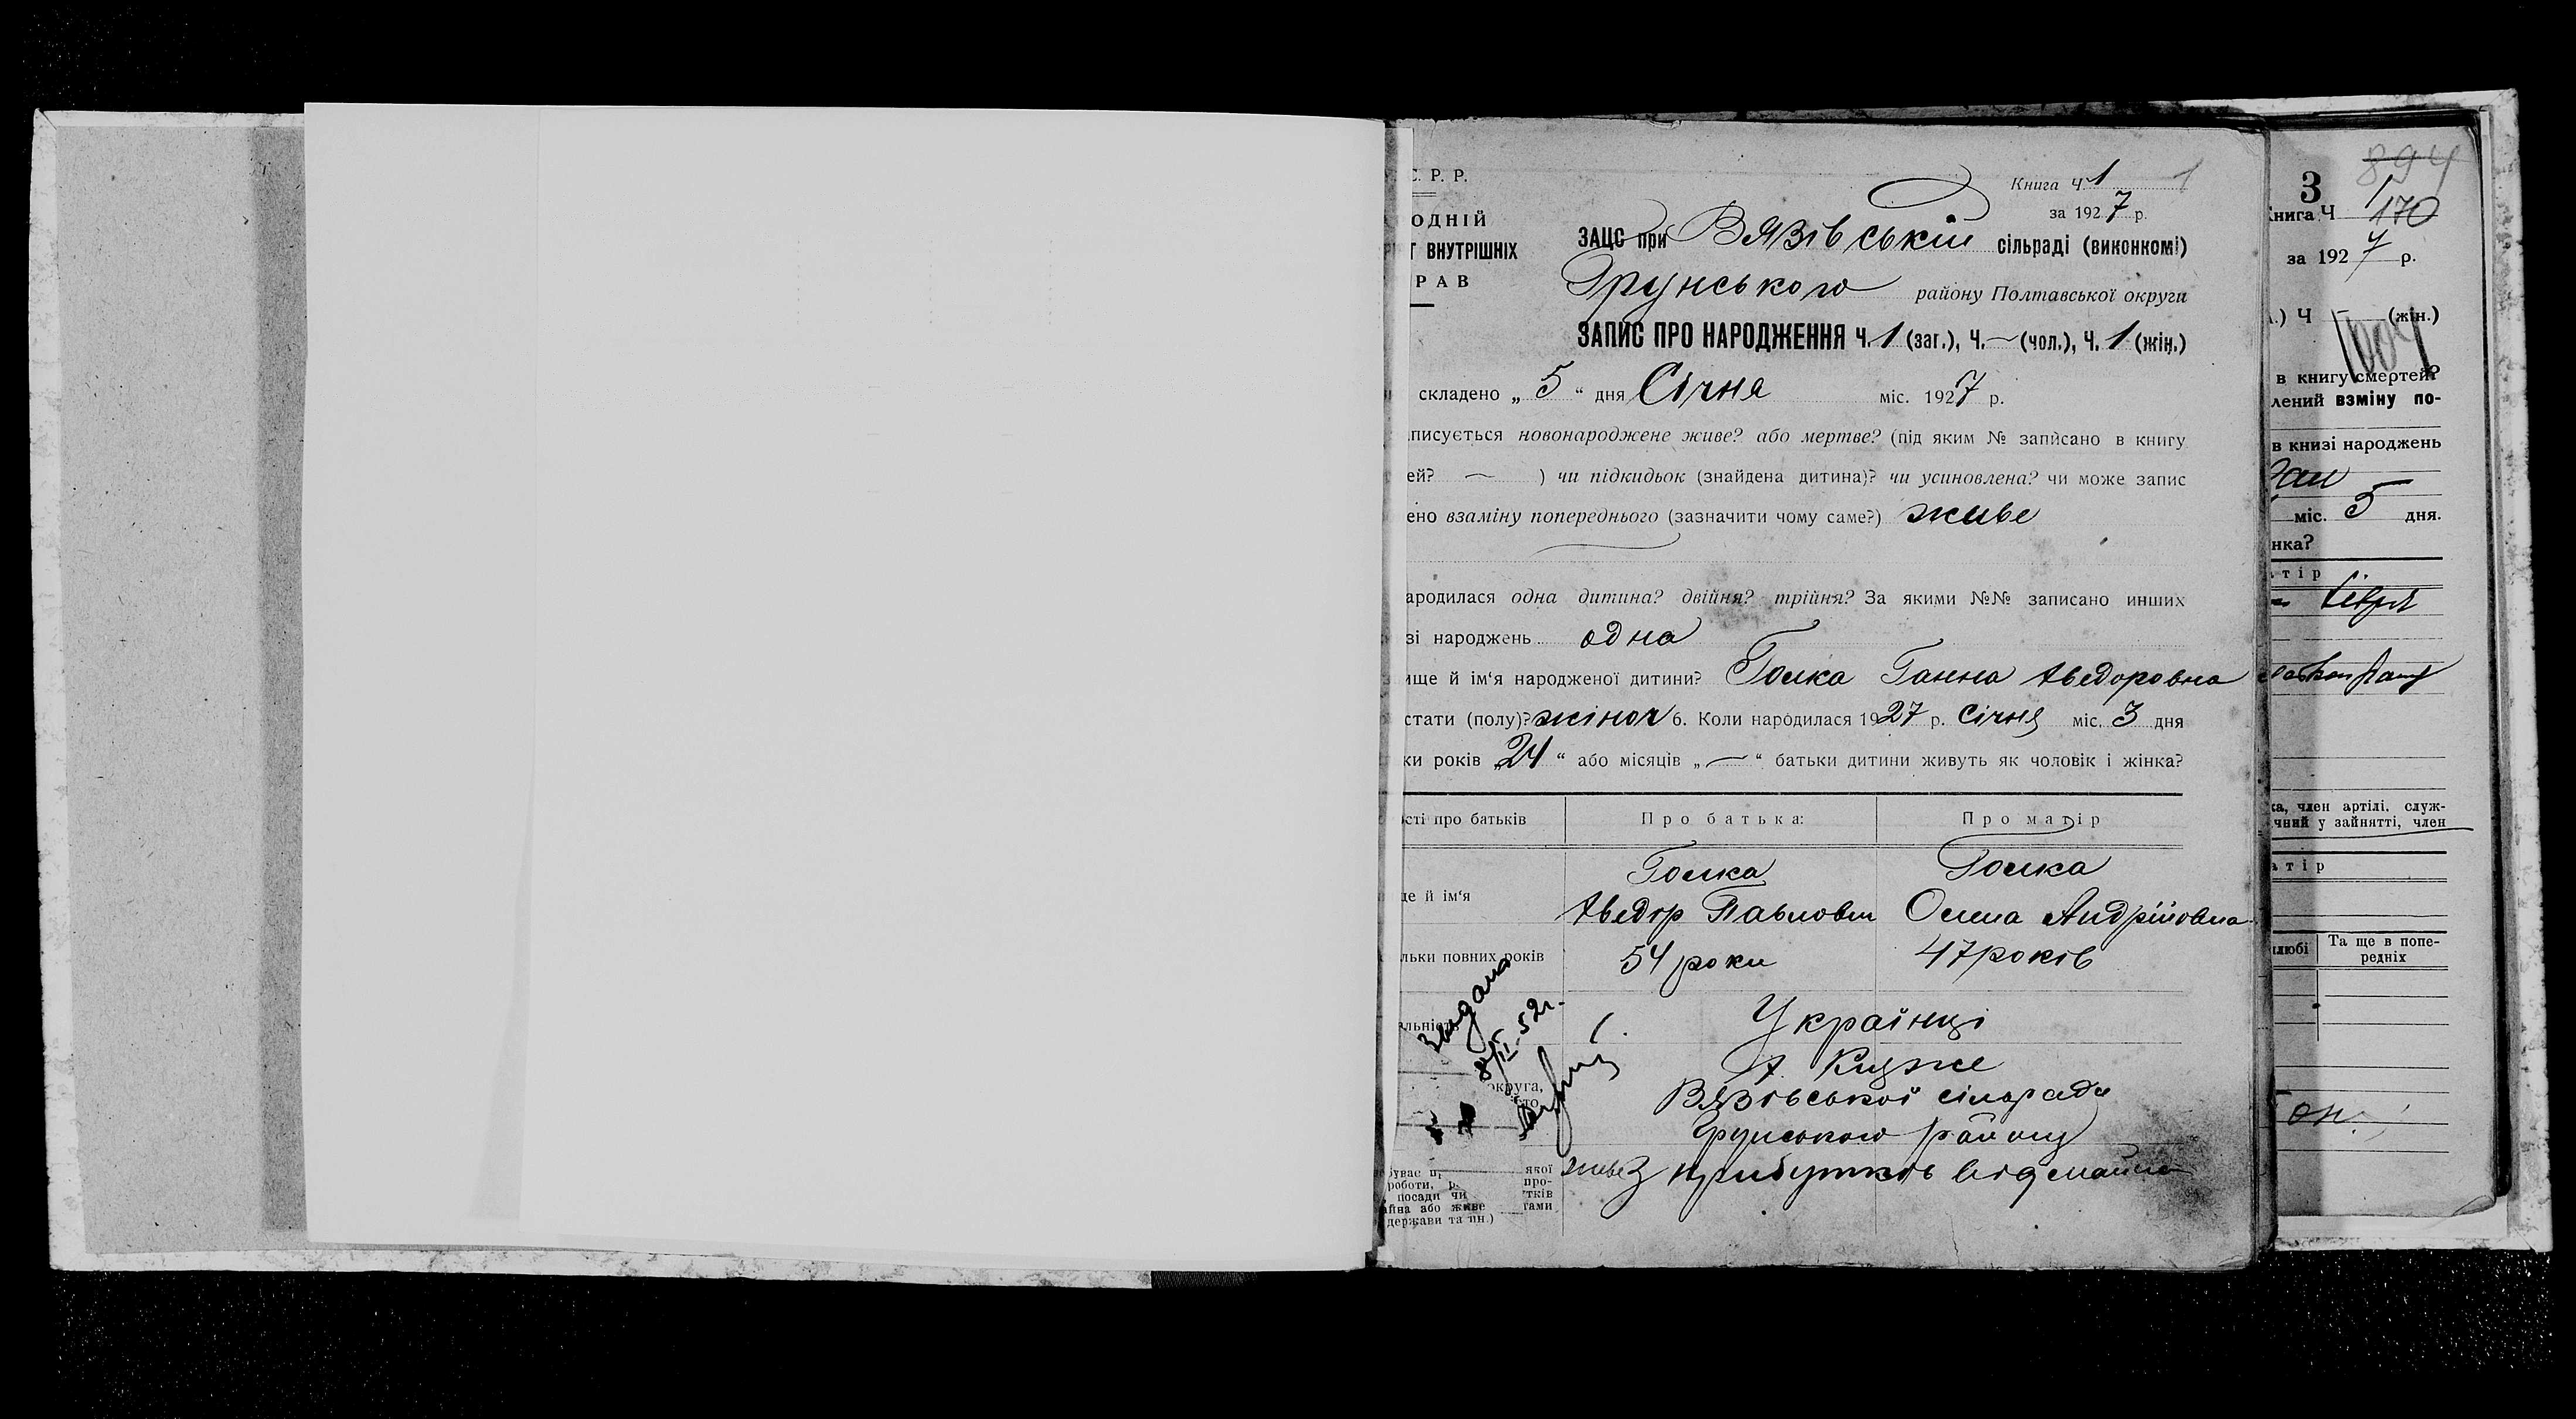 С. Р. Р.
Книга Ч. 1 1
за 1927 р.
ОДНІЙ
Т ВНУТРІШНІХ
РАВ
ЗАЦС при Вязівській сільраді (виконкомі)
Грунського району Полтавської округи
ЗАПИС ПРО НАРОДЖЕННЯ Ч. 1 (заг.), Ч. — (чол.), Ч. 1 (жін.)
складено „ 5 “ дня Січня міс. 1927 р.
писується новонароджене живе? або мертве? (під яким № записано в книгу
ей? — ) чи підкидьок (знайдена дитина)? чи усиновлена? чи може запис
ено взаміну попереднього (зазначити чому саме?) живе
ародилася одна дитина? двійня? трійня? За якими №№ записано инших
зі народжень одна
ище й ім‘я народженої дитини? Голка Ганна Хведоровна
стати (полу)? жіноч 6. Коли народилася 1927 р. Січня міс. 3 дня
ки років „24“ або місяців „—“ батьки дитини живуть як чоловік і жінка?
сті про батьків Про батька: Про матір
Голка Голка
це й ім‘я Хведір Павлович Олина Андрійовна
льки повних років 54 роки 47 років
льність Українці
8/II-52г.
округа, х. Кирже
Вязівської сільради
Грунського району
живе з прибутків від майна
буває п якої
роботи, р. про-
посади чи тків
айна або живе тами
держави та ин.)
894
3
Книга Ч 1 170
за 1927 р.
.) Ч — (жін.)
1004
в книгу смертей?
лений взміну по-
в книзі народжень
міс. 5 дня.
нка?
тір
ка, член артілі, служ-
чний у зайнятті, член
атір
любі Та ще в попе-
редніх